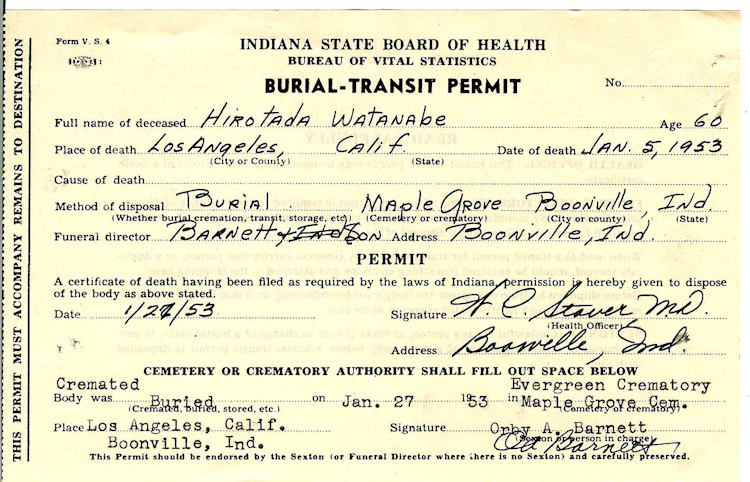 Form V. S. 4
INDIANA STATE BOARD OF HEALTH
BUREAU OF VITAL STATISTICS
BURIAL-TRANSIT PERMIT
No.
Full name of deceased HIROTADA WATANABE Age 60
Place of death Los Angeles, Calif. Date of death JAN. 5, 1953
(City or County) (State)
Cause of death
Method of disposal BURIAL Maple Grove Boonville, Ind.
(Whether burial, cremation, transit, storage, etc.) (Cemetery or crematory) (City or county) (State)
Funeral director BARNETT & Son Address Boonville, Ind.
PERMIT
A certificate of death having been filed as required by the laws of Indiana, permission is hereby given to dispose
of the body as above stated.
Date 1/27/53 Signature H. C. Stover MD.
(Health Officer)
Address Boonville, Ind.
CEMETERY OR CREMATORY AUTHORITY SHALL FILL OUT SPACE BELOW
Cremated Evergreen Crematory
Body was Buried on Jan. 27 1953 in Maple Grove Cem.
(Cremated, buried, stored, etc.) (Cemetery or crematory)
Place Los Angeles, Calif. Signature Orby A. Barnett
(Sexton or person in charge)
Boonville, Ind. Barnett
This Permit should be endorsed by the Sexton (or Funeral Director where there is no Sexton) and carefully preserved.
THIS PERMIT MUST ACCOMPANY REMAINS TO DESTINATION